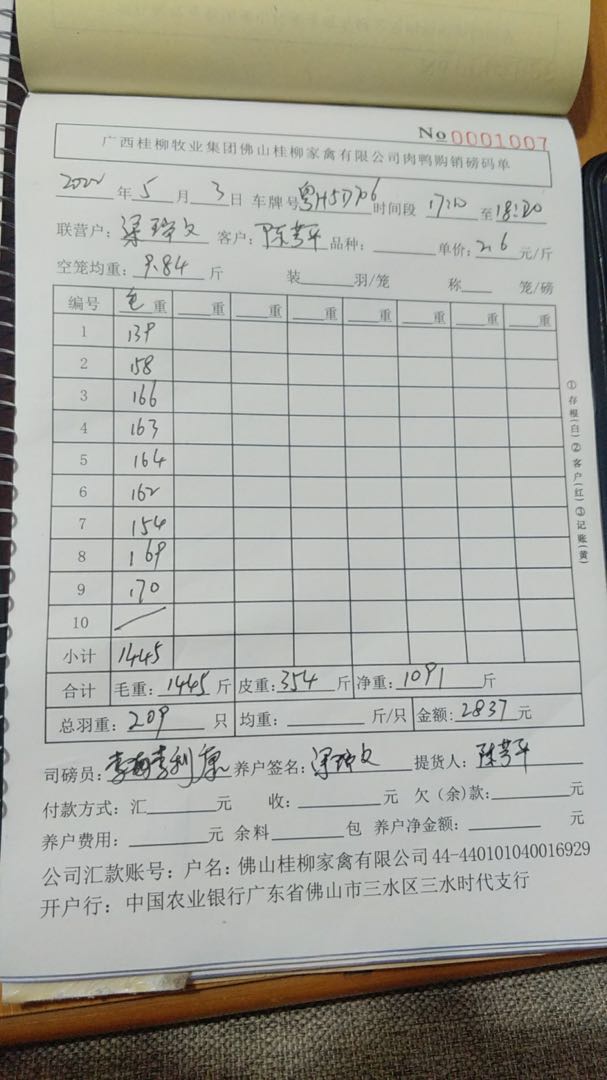 No 0001007
广西桂柳牧业集团佛山桂柳家禽有限公司肉鸭购销磅码单
2022年5月3日 车牌号粤H5D706 时间段 17:10 至18:20
联营户:梁瑞文 客户:陈芳平 品种: 单价:2.6元/斤
空笼均重:9.84斤 装 羽/笼 称 笼/磅
编号 毛重 重 重 重 重 重 重 重
1 139
2 158
3 166
4 163
5 164
6 162
7 154
8 169
9 170
10
小计 1445
合计 毛重:1445斤 皮重:354斤 净重:1091斤
总羽重:209只 均重: 斤/只 金额:2837元
司磅员: 李利康 养户签名:梁瑞文 提货人:陈芳平
付款方式:汇 元 收: 元 欠(余)款: 元
养户费用: 元 余料 包 养户净金额: 元
公司汇款账号:户名:佛山桂柳家禽有限公司 44-440101040016929
开户行:中国农业银行广东省佛山市三水区三水时代支行
①存根(白)②客户(红)③记账(黄)